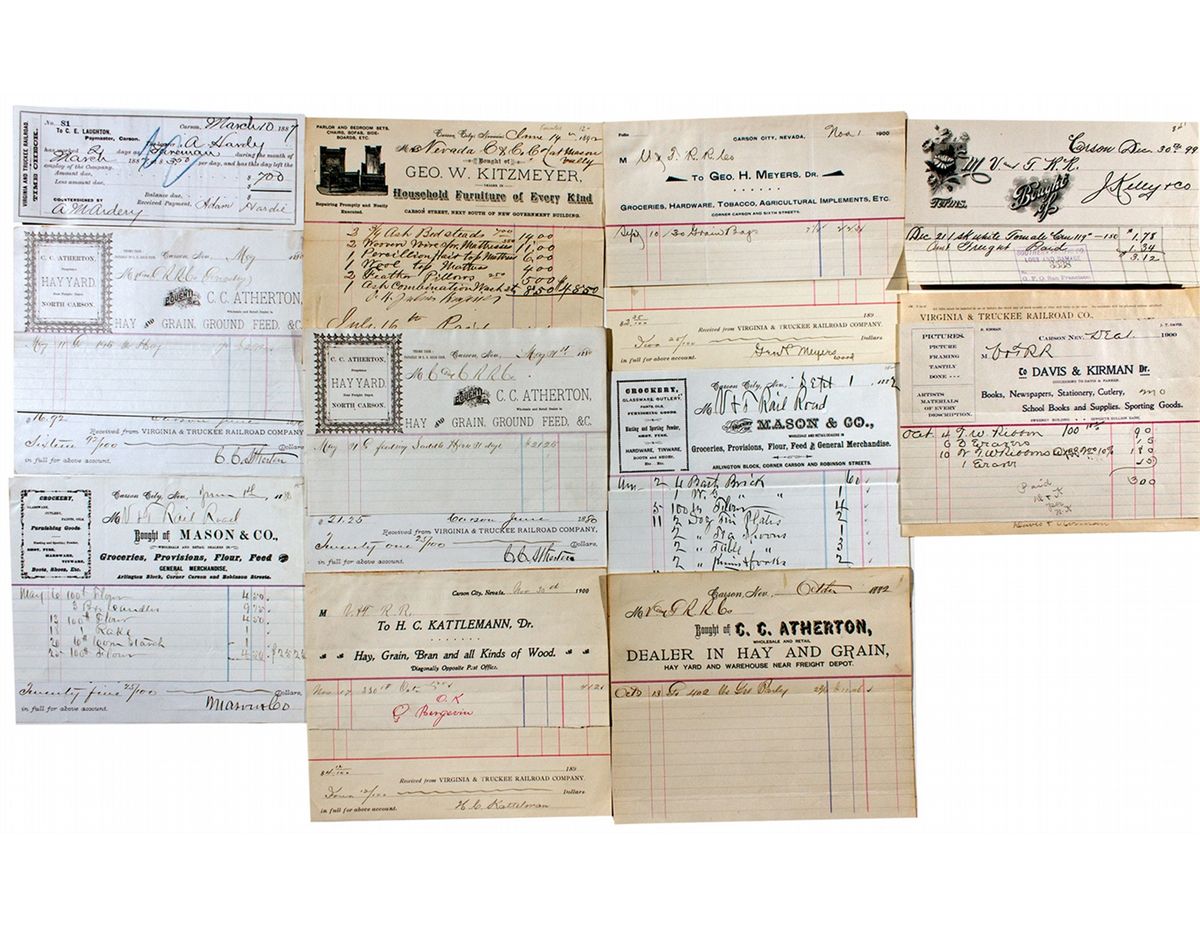 VIRGINIA AND TRUCKEE RAILROAD.
TIME CHECK.
No. 81
Carson, March 10 1887
To C. E. LAUGHTON,
Paymaster, Carson.
A Hardy
has worked 2 days as Foreman during the month of
March 1887 @ 350 per day, and has this day left the
employ of the Company.
Amount due, $ 700
Less amount due, $
Balance due, $
COUNTERSIGNED BY
Received Payment, Adam Hardie
A M Ardery
PARLOR AND BEDROOM SETS,
CHAIRS, SOFAS, SIDE-
BOARDS, ETC.
Repairing Promptly and Neatly
Executed.
Carson City, Nevada, June 14 1892
M Nevada
Bought of
GEO. W. KITZMEYER,
DEALER IN
Household Furniture of Every Kind
CARSON STREET, NEXT SOUTH OF NEW GOVERNMENT BUILDING.
3 Ash Bedsteads 14.00
2 Woven Wire Mattresses 11.00
1 Top Mattress 6.00
1 Wool top Mattress 4.00
2 Feather Pillows 250 5.00
1 Ash Combination Wash st 8.50 $48.50
July 16th Paid
Folio
CARSON CITY, NEVADA. Nov 1 1900
M V & T. R.R. Co
TO GEO. H. MEYERS, DR.
GROCERIES, HARDWARE, TOBACCO, AGRICULTURAL IMPLEMENTS, ETC.
CORNER CARSON AND SIXTH STREETS.
Sep 10 130 Grain Bags
189
Received from VIRGINIA & TRUCKEE RAILROAD COMPANY.
Dollars.
in full for above account.
Geo H Meyers
Carson Dec 30th 99
M V & T. RR.
Bought of
J Kelly & Co
TERMS.
Dec 21 1 sk white 119# 150 $1.78
Freight Paid 1.34
$3.12
SOUTHERN PACIFIC
LOSS AND DAMAGE
G. F. O. San Francisco
C. C. ATHERTON,
Proprietor
HAY YARD.
Near Freight Depot,
NORTH CARSON.
Carson, Nev., May 1880
BOUGHT OF
C. C. ATHERTON,
Wholesale and Retail Dealer in
HAY AND GRAIN, GROUND FEED, &C.
16.92
Received from VIRGINIA & TRUCKEE RAILROAD COMPANY,
Sixteen 92/100 Dollars.
in full for above account.
C. C. Atherton
C. C. ATHERTON,
Proprietor
HAY YARD.
Near Freight Depot,
NORTH CARSON.
Carson, Nev., May 31st 1880
BOUGHT OF
C. C. ATHERTON,
Wholesale and Retail Dealer in
HAY AND GRAIN, GROUND FEED, &C.
May 31 feeding Saddle Horse days $21.25
$21.25 Carson June 1880
Received from VIRGINIA & TRUCKEE RAILROAD COMPANY,
Twenty one 25/100 Dollars.
in full for above account.
C. C. Atherton
CROCKERY,
GLASSWARE, CUTLERY,
PAINTS, OILS,
FURNISHING GOODS
Blasting and Sporting Powder,
SHOT, FUSE,
HARDWARE, TINWARE,
BOOTS and SHOES,
Etc. Etc.
Carson City, Nev., Sept 1 1882
M V & T Rail Road
Bought of
MASON & CO.,
WHOLESALE AND RETAIL DEALERS IN
Groceries, Provisions, Flour, Feed and General Merchandise.
ARLINGTON BLOCK, CORNER CARSON AND ROBINSON STREETS.
2 6 Bath Brick
5 100 lb Flour
11 2 Doz tin Plates
2 " Tea Spoons
2 " Table "
2 " Knives & forks
VIRGINIA & TRUCKEE RAILROAD CO.,
PICTURES.
PICTURE
FRAMING
TASTILY
DONE
ARTISTS
MATERIALS
OF EVERY
DESCRIPTION.
R. KIRMAN. J. T. DAVIS.
CARSON NEV. Dec 1 1900
M. V & T RR
To DAVIS & KIRMAN Dr.
SUCCEEDING TO DAVIS & PARKER.
Books, Newspapers, Stationery, Cutlery,
School Books and Supplies. Sporting Goods.
SWEENEY BUILDING OPPOSITE BULLION BANK.
Oct 4 1 T. W. Ribbon 100 90
6 2 Erazers 15
10 2 T. W Ribbons 10% 180
1 Eraser 15
300
Paid
Davis & Kirman
CROCKERY,
GLASSWARE,
CUTLERY,
PAINTS, OILS
Furnishing Goods
Blasting and Sporting Powder,
SHOT, FUSE,
HARDWARE,
TINWARE,
Boots, Shoes, Etc.
Carson City, Nev., June 1st
M V & T Rail Road
Bought of MASON & CO.,
WHOLESALE AND RETAIL DEALERS IN
Groceries, Provisions, Flour, Feed
GENERAL MERCHANDISE,
Arlington Block, Corner Carson and Robinson Streets.
May 6 100 lb Flour 4.50
3 Bxs Candles 9 75
12 100 lb Flour 4.50
18 1 Rake 1
20 10 lb Corn Starch 1
25 100 lb Flour 4.50 $25.25
Twenty five 25/100 Dollars,
in full for above account.
Mason & Co
Carson City, Nevada, Nov 30th 1900
M V & T R. R.
To H. C. KATTLEMANN, Dr.
Hay, Grain, Bran and all Kinds of Wood.
Diagonally Opposite Post Office.
Nov 17 330 lb Oats 412
O.K
G Bergevin
$4 12/100 189
Received from VIRGINIA & TRUCKEE RAILROAD COMPANY.
Four 12/100 Dollars
in full for above account.
H. C. Kattelman
Carson, Nev., October 1882
M V & T R R Co
Bought of C. C. ATHERTON,
WHOLESALE AND RETAIL
DEALER IN HAY AND GRAIN,
HAY YARD AND WAREHOUSE NEAR FREIGHT DEPOT.
Oct 13 To Barley